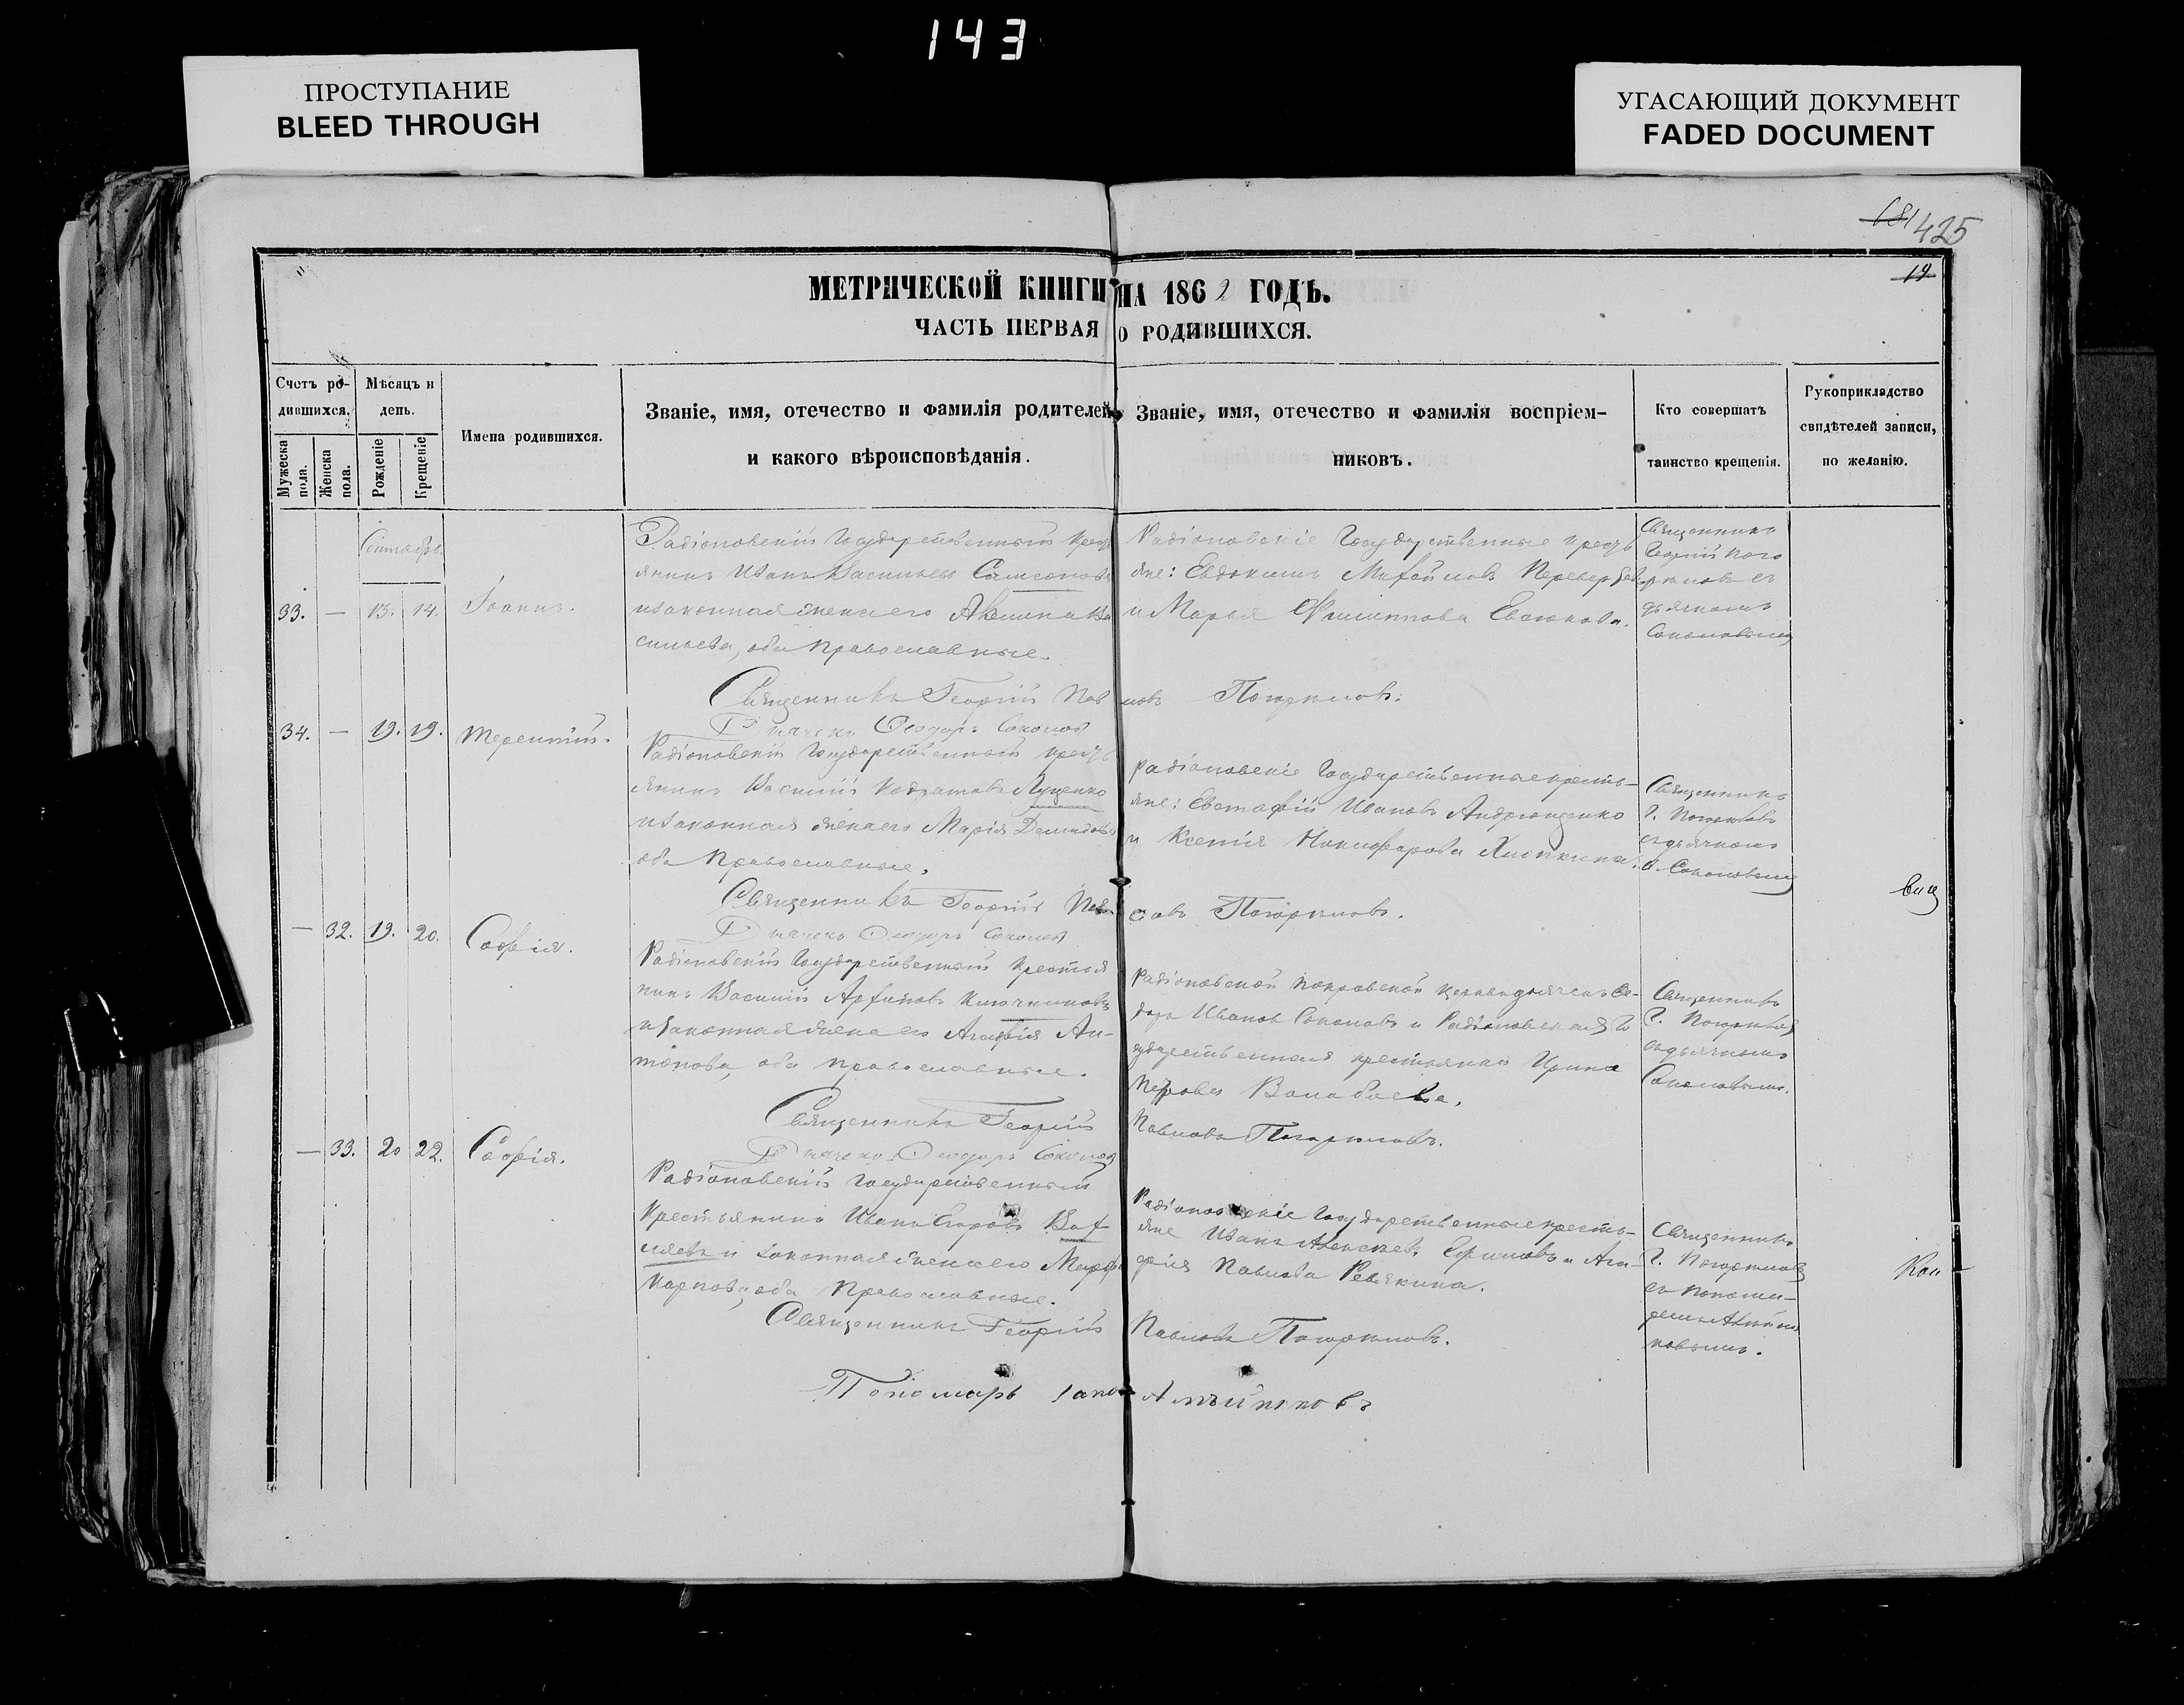 143
ПРОСТУПАНИЕ
BLEED THROUGH
УГАСАЮЩИЙ ДОКУМЕНТ
FADED DOCUMENT
681
425
19
МЕТРИЧЕСКОЙ КНИГИ НА 1862 ГОДЪ.
ЧАСТЬ ПЕРВАЯ О РОДИВШИХСЯ.
Счетъ ро-
дившихся.
Мужеска пола.
Женска пола.
Мѣсяцъ и
день.
Рожденіе
Крещеніе
Имена родившихся.
Званіе, имя, отечество и фамилія родителей,
и какого вѣроисповѣданія.
Званіе, имя, отечество и фамилія воспріем-
никовъ.
Кто совершатъ
таинство крещенія.
Рукоприкладство
свидѣтелей записи,
по желанію.
Сентябрь.
33. — 13. 14. Іоаннъ.
Радіоновскій Государственный крестъ
янинъ Иванъ Васильевъ Самсоновъ
и законная жена его Акилина Ва
сильева, оба православные.
Радіоновскіе Государственные кресть
яне: Евдокимъ Михайловъ
и Марья Филиппова Евсюкова.
Священникъ
Георгій Пого
рѣловъ съ
дьячкомъ
Соколовымъ
Священникъ Георгій Пав
ловъ Погорѣловъ.
Дьячекъ Ѳеодоръ Соколов
34. — 19. 19. Терентій.
Радіоновскій Государственный кресть
янинъ Василій Кодратовъ Луценко
и законная жена его Марія Демидова
оба Православные.
Радіоновскіе Государственные кресть-
яне: Евстафій Ивановъ Андрющенко
и Ксенія Никифорова
Священникъ
Г. Погорѣловъ
съ дьячкомъ
Ѳ. Соколовымъ
Священникъ Георгій Пав
ловъ Погорѣловъ.
Дьячекъ Ѳеодоръ Соколов
— 32. 19. 20. Софія.
Радіоновскій Государственный крестья
нинъ Василій Архиповъ Ключниковъ
и законная жена его Агафія Ан-
тонова, оба православные.
Радіоновской Покровской церкви дьячекъ Ѳе-
доръ Ивановъ Соколовъ и Радіоновская Го
сударственная крестьянка Ирина
Петрова
Священникъ
Г. Погорѣлов
съ дьячкомъ
Соколовымъ.
Священникъ Георгій
Павловъ Погорѣловъ.
Дьячекъ Ѳеодоръ Соколов
— 33. 20 22. Софія.
Радіоновскій Государственный
Крестьянинъ Иванъ Егоровъ
и законная жена его Марфа
Карпова, оба Православные.
Радіоновскіе Государственные кресть-
яне Иванъ Алексѣев. и Ага-
фія Павлова Ревякина.
Священникъ
Г. Погорѣлов
съ понома-
ремъ
Священникъ Георгій
Павловъ Погорѣловъ.
Пономарь